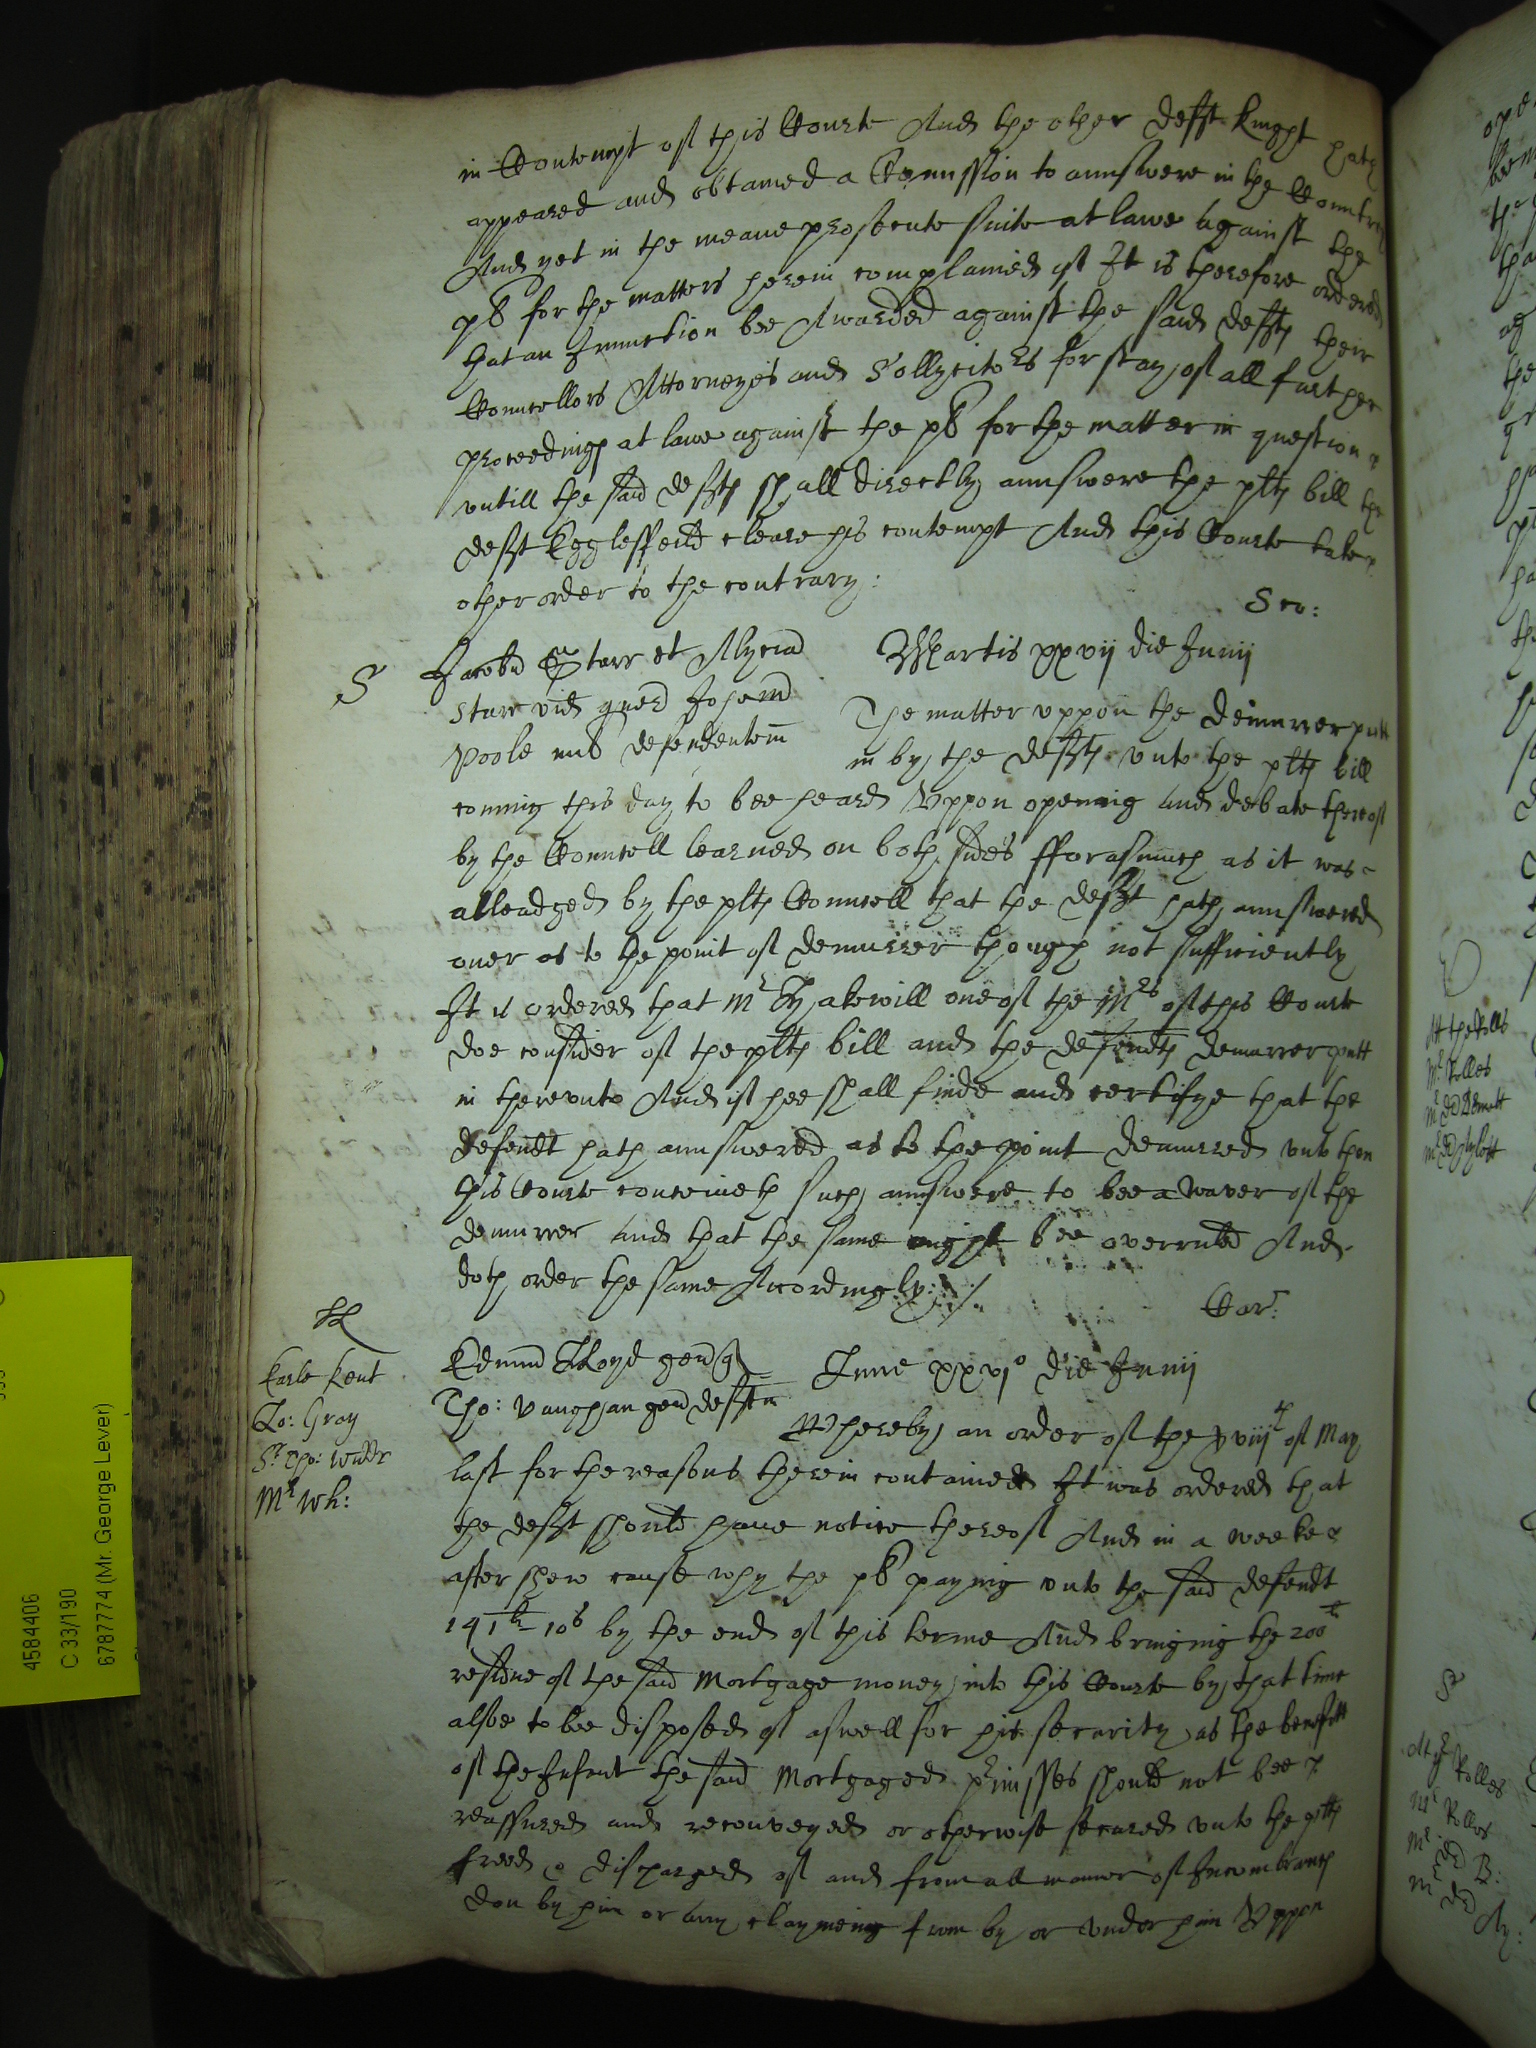 in Contempt of this Courte And the other defft Knight hath
appeared and obtained a Comission to aunswere in the Countrey
And yet in the meane prosecute suite at lawe against the
pl for the matters herein complained of It is therefore ordered
that an Iniunction bee Awarded against the said defftes their
Councellors Attorneyes and Sollycitors for stay of all further
proceedinges at lawe against the pl for the matter in question
vntill the said defftes shall directly aunswere the pltes bill the
defft Eggleffeild cleare his contempt And this Courte take
other order to the contrary:
Sco:
S
Jacobu Starr et Alycia
Starr vid quer Johem
Poole mil defendentem
Martis xxvij die Junij
The matter vppon the demurrer putt
in by the defftes vnto the pltes bill
coming this day to bee heard Vppon opening and debate thereof
by the Councell learned on both sides fforasmuch as it was
alleadged by the pltes Councell that the defft hath aunswered
ouer as to the point of demurrer though not sufficiently
It is ordered that Mr Hakewill one of the Mrs of this Courte
doe consider of the pltes bill and the defendtes demurrer putt
in therevnto And if hee shall finde and certifye that the
defendt hath aunswered as to the point demurred vnto then
this Courte conceiueth such aunswere to bee a waver of the
demurrer and that the same ought bee overruled And
doth order the same Accordingly:
Car:
Earle Kent
Lo: Gray
Sr Tho: Widdr
Mr Wh:
Edmund Lloyd gen q
Tho: Vaughan gen defftem
Lune xxvjo die Junij
Whereby an order of the xviijth of May
last for the reasons therein contained It was ordered that
the defft should haue notice thereof And in a weeke
after shew cause why the pl paying vnto the said defendt
141li 10s by the end of this terme And bringing the 200li
residue of the said Mortgage money into this Courte by that time
alsoe to bee disposed of aswell for his security as the benefitt
of the Infant the said Mortgaged prmisses should not bee
reassured and reconveyed or otherwise secured vnto the pltes
freed & discharged of and from all manner of Incombrances
don by him or any claymeing from by or vnder him Vppon
4584406
C 33/190
6787774 (Mr. George Lever)
At the Rolls
Mr Rolles